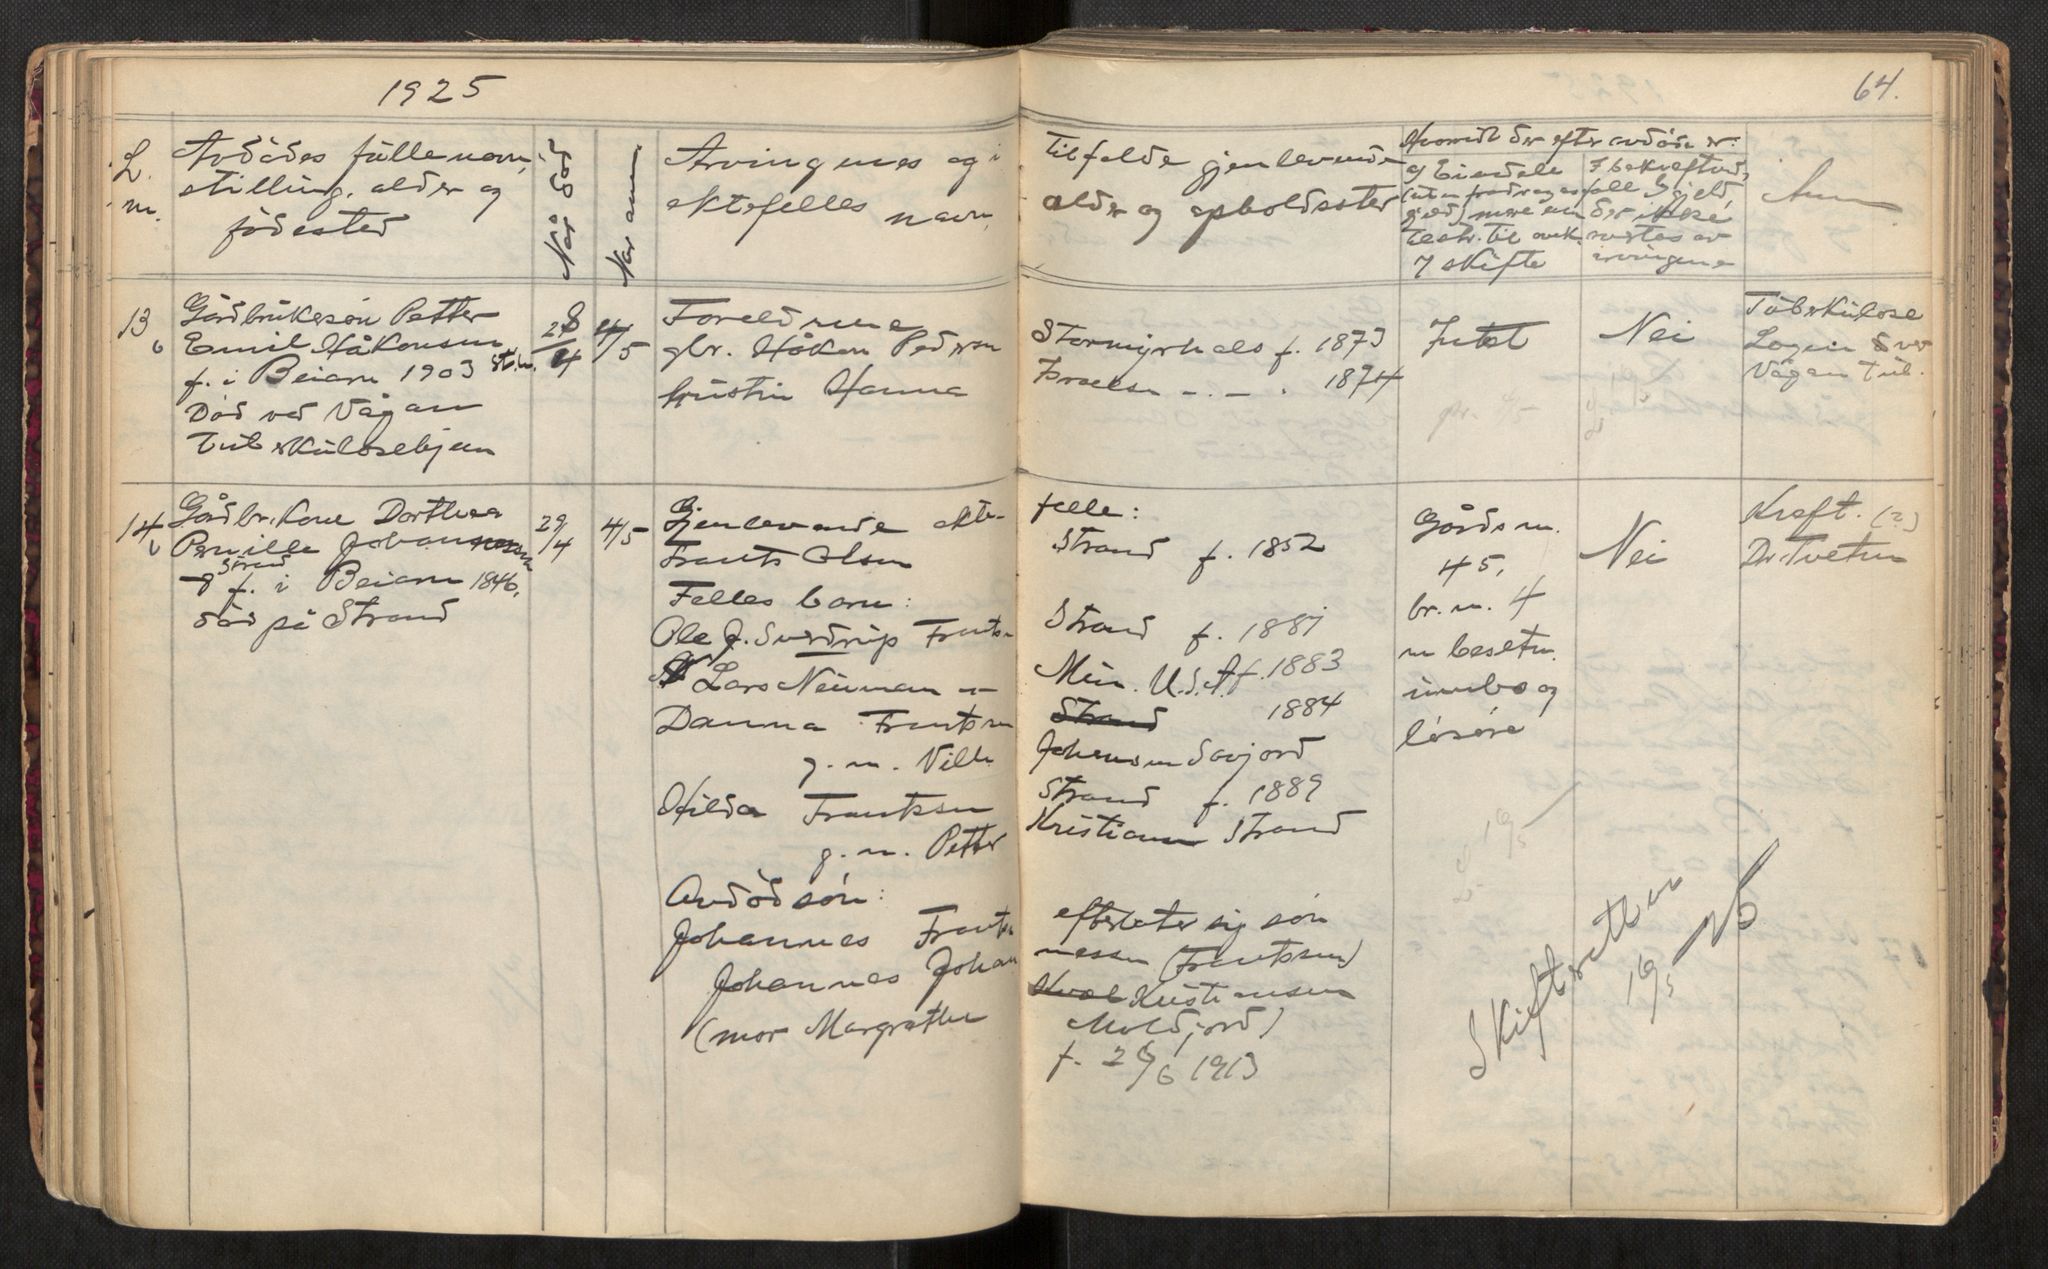 1925
64.
L. m.
Avdødes fulle navn,
stilling, alder og
fødested
Når død
Når anm.
Arvingenes og i
ektefelles navn,
tilfelde gjenlevende
alder og opholdsster
Hvorvidt der efter avdøde er:
g Eiendele
gjeld) mere enn
7 skifte
? bekreftede
der ikke
arvingene
Anm
13
Gårdbrukersøn Petter
Emil Håkonsen
f. i Beiarn 1903
Død ved Vågan
Tuberkulosehjem
28/4
4/5
Foreldrene
gbr. Håkon Pedersen
Kristin Hanna
Stormyrhals f. 1873
Israelsen - . - . 1874
Intet
Nei
Tuberkulose
Vågan Tub.
14
Gårdbr.kone Dorthea
Pernille Johannessen
Strand
f. i Beiarn 1846,
død på Strand
29/4
4/5
Gjenlevende ekte-
Frants Olsen
Felles barn:
Ole J. Sverdrup Frants
Lars Neuman -"-
Danna Frantsen
g. m. Ville
Hilda Frantsen
g. m. Petter
Avdød søn:
Johannes Frants
Johannes Johan
(mor Margrethe
felle:
Strand f. 1852
Strand f. 1881
Min. U.S.A f. 1883
Strand 1884
Johansen Savjord
Strand f. 1889
Kristiansen Strand
efterlater sig søn
nessen (Frantsen)
Kristiansen
Moldjord)
f. 29/6 1913
Gårdsn.
45,
br. n. 4
m besetn.
innbo og
løsøre
Nei
Kreft. (?)
Dr. Tveten
Skifteretten
19/5 25